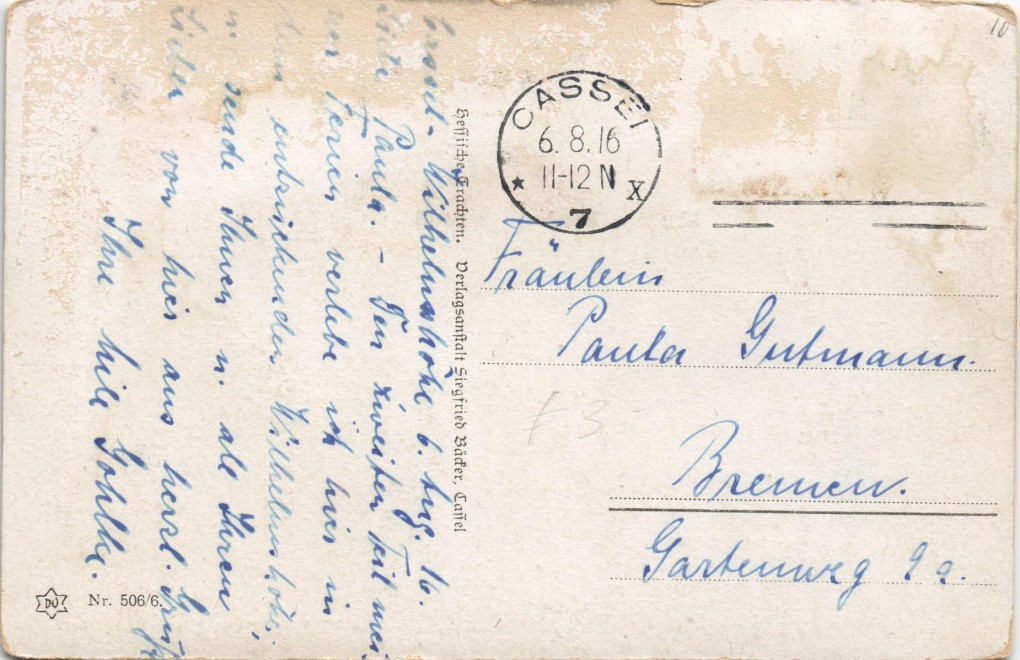 Cassel-Wilhelmshöhe, 6. Aug. 16.
Liebe Paula. - Den zweiten Teil mei
ner Ferien verlebe ich hier in
dem entzückenden Wilhelmshöhe,
u. sende Ihnen u. all Ihren
Lieben von hier aus herzl. Grüße
Ihre
Hessische Trachten. Verlagsanstalt Siegfried Bäcker, Cassel
Nr. 506/6.
CASSEL
6. 8. 16
11-12 N
* X
7
10
Fräulein
Paula Gutmann.
F 3 -
Bremen.
Gartenweg 9a.